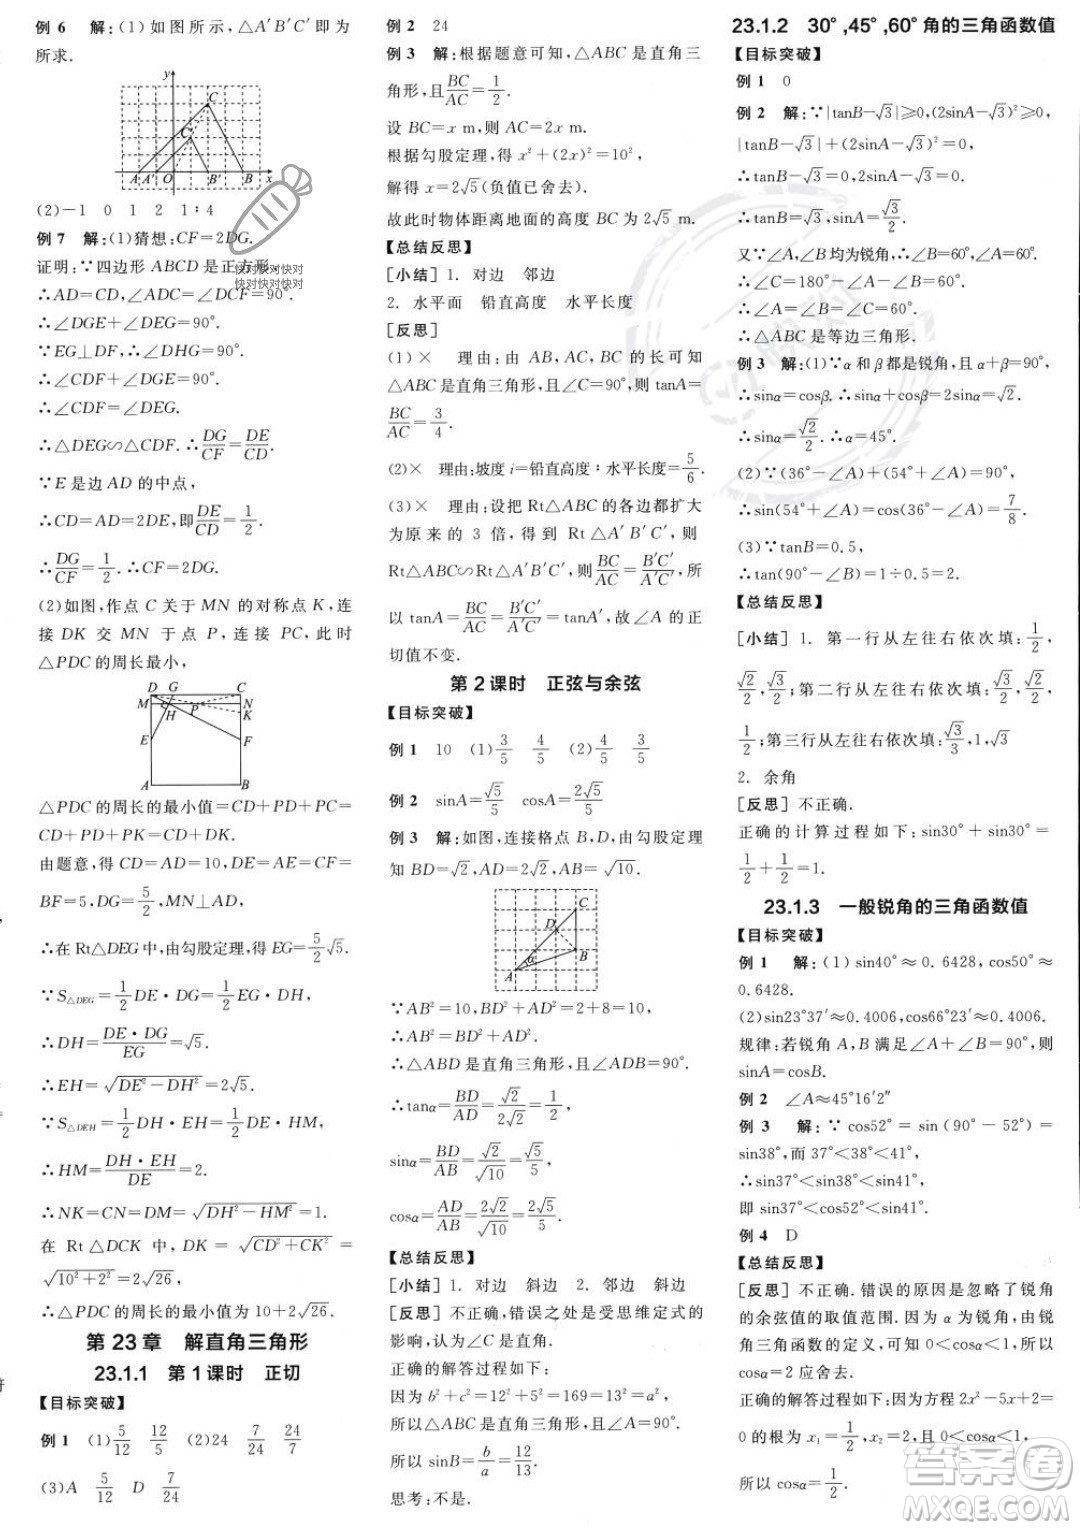 例 6　解:(1)如图所示,△A′B′C′即为
所求.
y
C
C′
A A′ O B′ B x
(2)-1　0　1　2　1∶4
例 7　解:(1)猜想:CF=2DG.
证明:∵四边形 ABCD 是正方形,
快对快对快对
快对快对快对
∴AD=CD,∠ADC=∠DCF=90°.
∴∠DGE+∠DEG=90°.
∵EG⊥DF,∴∠DHG=90°.
∴∠CDF+∠DGE=90°.
∴∠CDF=∠DEG.
∴△DEG∽△CDF.∴DG/CF=DE/CD.
∵E 是边 AD 的中点,
∴CD=AD=2DE,即DE/CD=1/2.
∴DG/CF=1/2.∴CF=2DG.
(2)如图,作点 C 关于 MN 的对称点 K,连
接 DK 交 MN 于点 P,连接 PC,此时
△PDC 的周长最小,
D G C
M H P N
K
E F
A B
△PDC 的周长的最小值=CD+PD+PC=
CD+PD+PK=CD+DK.
由题意,得 CD=AD=10,DE=AE=CF=
BF=5,DG=5/2,MN⊥AD,
∴在 Rt△DEG 中,由勾股定理,得 EG=5/2√5.
∵S△DEG=1/2DE·DG=1/2EG·DH,
∴DH=DE·DG/EG=√5.
∴EH=√(DE²-DH²)=2√5.
∵S△DEH=1/2DH·EH=1/2DE·HM,
∴HM=DH·EH/DE=2.
∴NK=CN=DM=√(DH²-HM²)=1.
在 Rt△DCK 中,DK=√(CD²+CK²)=
√(10²+2²)=2√26,
∴△PDC 的周长的最小值为 10+2√26.
第 23 章　解直角三角形
23.1.1　第 1 课时　正切
【目标突破】
例 1　(1)5/12　12/5　(2)24　7/24　24/7
(3)A　5/12　D　7/24
例 2　24
例 3　解:根据题意可知,△ABC 是直角三
角形,且BC/AC=1/2.
设 BC=x m,则 AC=2x m.
根据勾股定理,得 x²+(2x)²=10²,
解得 x=2√5(负值已舍去).
故此时物体距离地面的高度 BC 为 2√5 m.
【总结反思】
[小结]1. 对边　邻边
2. 水平面　铅直高度　水平长度
[反思]
(1)×　理由:由 AB,AC,BC 的长可知
△ABC 是直角三角形,且∠C=90°,则 tanA=
BC/AC=3/4.
(2)×　理由:坡度 i=铅直高度∶水平长度=5/6.
(3)×　理由:设把 Rt△ABC 的各边都扩大
为原来的 3 倍,得到 Rt△A′B′C′,则
Rt△ABC∽Rt△A′B′C′,则BC/AC=B′C′/A′C′,所
以 tanA=BC/AC=B′C′/A′C′=tanA′,故∠A 的正
切值不变.
第 2 课时　正弦与余弦
【目标突破】
例 1　10　(1)3/5　4/5　(2)4/5　3/5
例 2　sinA=√5/5　cosA=2√5/5
例 3　解:如图,连接格点 B,D,由勾股定理
知 BD=√2,AD=2√2,AB=√10.
C
D
α B
A
∵AB²=10,BD²+AD²=2+8=10,
∴AB²=BD²+AD².
∴△ABD 是直角三角形,且∠ADB=90°.
∴tanα=BD/AD=√2/2√2=1/2,
sinα=BD/AB=√2/√10=√5/5,
cosα=AD/AB=2√2/√10=2√5/5.
【总结反思】
[小结]1. 对边　斜边　2. 邻边　斜边
[反思]不正确,错误之处是受思维定式的
影响,认为∠C 是直角.
正确的解答过程如下:
因为 b²+c²=12²+5²=169=13²=a²,
所以△ABC 是直角三角形,∠A=90°,
所以 sinB=b/a=12/13.
思考:不是.
23.1.2　30°,45°,60°角的三角函数值
【目标突破】
例 1　0
例 2　解:∵|tanB-√3|≥0,(2sinA-√3)²≥0,
|tanB-√3|+(2sinA-√3)²=0,
∴tanB-√3=0,2sinA-√3=0.
∴tanB=√3,sinA=√3/2.
又∵∠A,∠B 均为锐角,∴∠A=60°,∠B=60°.
∴∠C=180°-∠A-∠B=60°.
∴∠A=∠B=∠C=60°.
∴△ABC 是等边三角形.
例 3　解:(1)∵α 和 β 都是锐角,且 α+β=90°,
∴sinα=cosβ.∴sinα+cosβ=2sinα=√2.
∴sinα=√2/2.∴α=45°.
(2)∵(36°-∠A)+(54°+∠A)=90°,
∴sin(54°+∠A)=cos(36°-∠A)=7/8.
(3)∵tanB=0.5,
∴tan(90°-∠B)=1÷0.5=2.
【总结反思】
[小结]1. 第一行从左往右依次填:1/2,
√2/2,√3/2;第二行从左往右依次填:√3/2,√2/2,
1/2;第三行从左往右依次填:√3/3,1,√3
2. 余角
[反思]不正确.
正确的计算过程如下:sin30°+sin30°=
1/2+1/2=1.
23.1.3　一般锐角的三角函数值
【目标突破】
例 1　解:(1)sin40°≈0.6428,cos50°≈
0.6428.
(2)sin23°37′≈0.4006,cos66°23′≈0.4006.
规律:若锐角 A,B 满足∠A+∠B=90°,则
sinA=cosB.
例 2　∠A≈45°16′2″
例 3　解:∵cos52°=sin(90°-52°)=
sin38°,而 37°<38°<45°,
∴sin37°<sin38°<sin45°,
即 sin37°<cos52°<sin45°.
例 4　D
[反思]不正确.错误的原因是忽略了锐角
的余弦值的取值范围.因为 α 为锐角,由锐
角三角函数的定义,可知 0<cosα<1,所以
cosα=2 应舍去.
正确的解答过程如下:因为方程 2x²-5x+2=
0 的根为 x₁=1/2,x₂=2,0<cosα<1,
所以 cosα=1/2.
答案圈
MXQE.COM